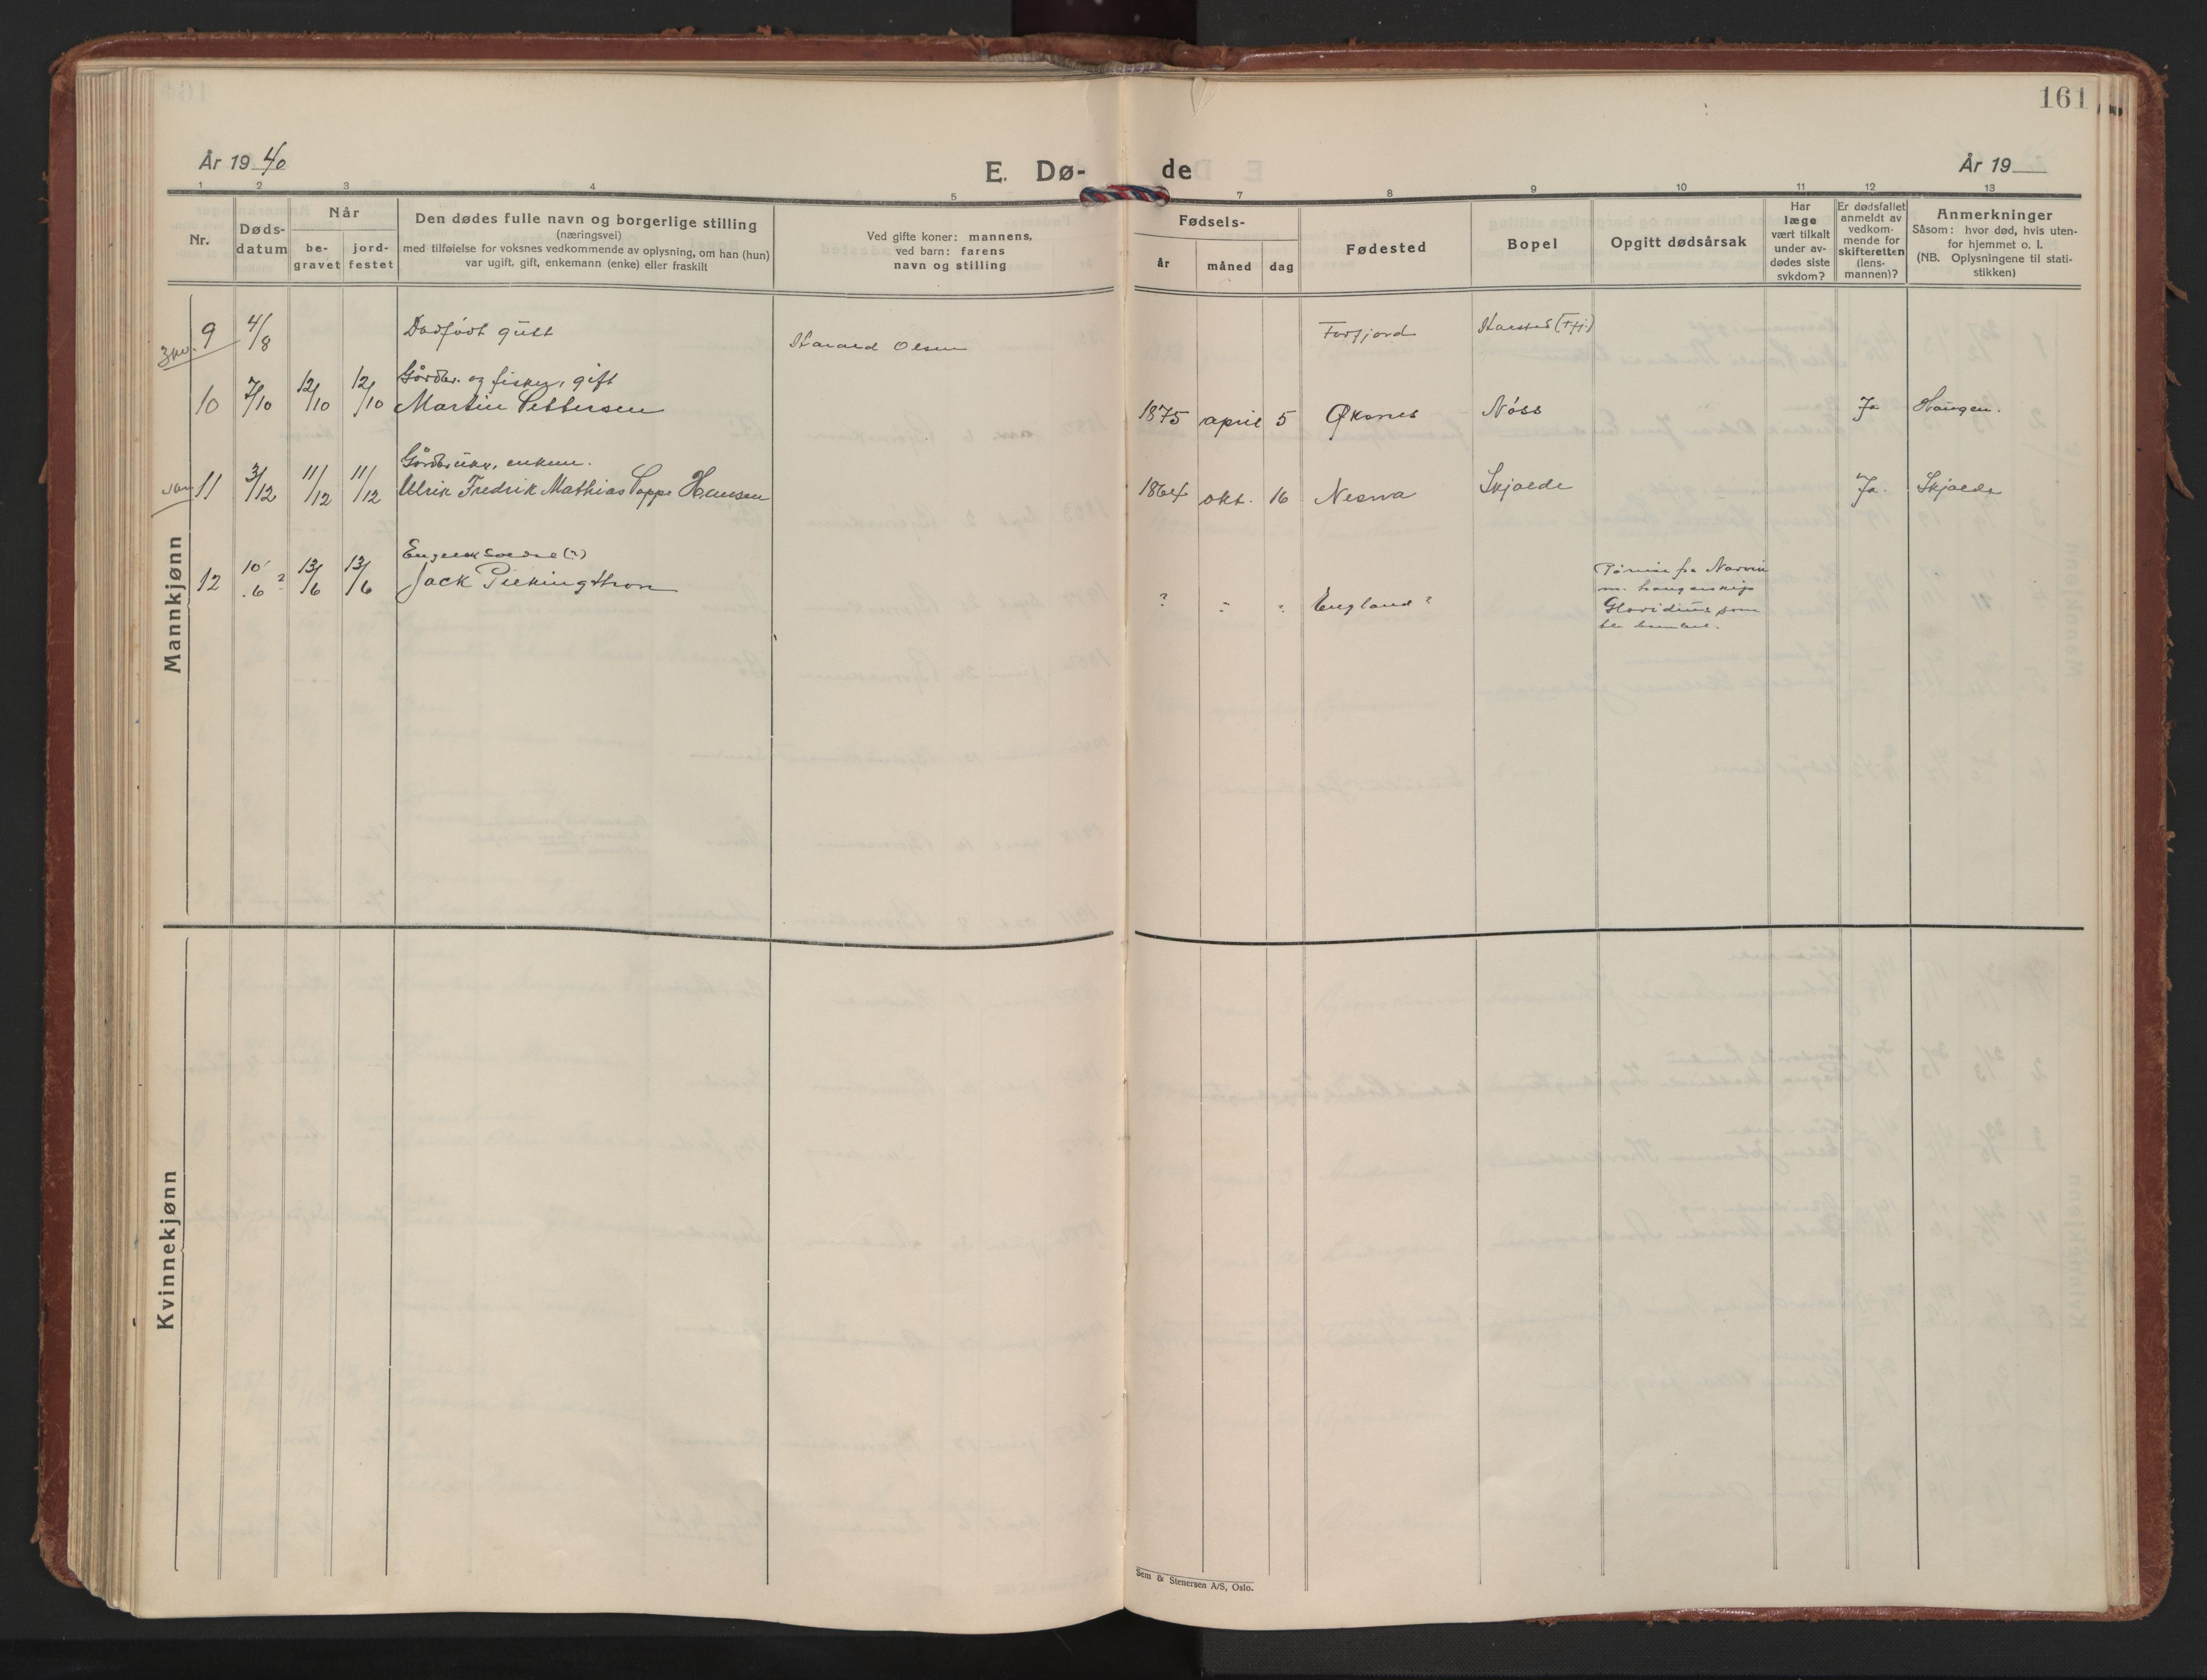 161
År 19 40
E. Dø-
de
År 19
1 2 3 4 5 7 8 9 10 11 12 13
Nr.
Døds-
datum
Når
be-
gravet
jord-
festet
Den dødes fulle navn og borgerlige stilling
(næringsvei)
med tilføielse for voksnes vedkommende av oplysning, om han (hun)
var ugift, gift, enkemann (enke) eller fraskilt
Ved gifte koner: mannens,
ved barn: farens
navn og stilling
Fødsels-
år
måned
dag
Fødested
Bopel
Opgitt dødsårsak
Har
læge
vært tilkalt
under av-
dødes siste
sykdom?
Er dødsfallet
anmeldt av
vedkom-
mende for
skifteretten
(lens-
mannen)?
Anmerkninger
Såsom: hvor død, hvis uten-
for hjemmet o. l.
(NB. Oplysningene til stati-
stikken)
Mannkjønn
9 4/8 Dødfødt gutt Harald Olsen Forfjord Harstad
Gårdbr. og fisker, gift
10 7/10 12/10 12/10 Martin Pettersen 1875 april 5 Øksnes Nøss Ja Haugen.
11 3/12 11/12 11/12 Ulrik Fredrik Mathias Hansen 1864 okt. 16 Nesna Skjolde Ja. Skjolde
Engelsk soldat (?)
12 10/6 ? 13/6 13/6 Jack ? England ?
fra Narvik
m. hangarskip
som
ble
Kvinnekjønn
Sem & Stenersen A/S, Oslo.